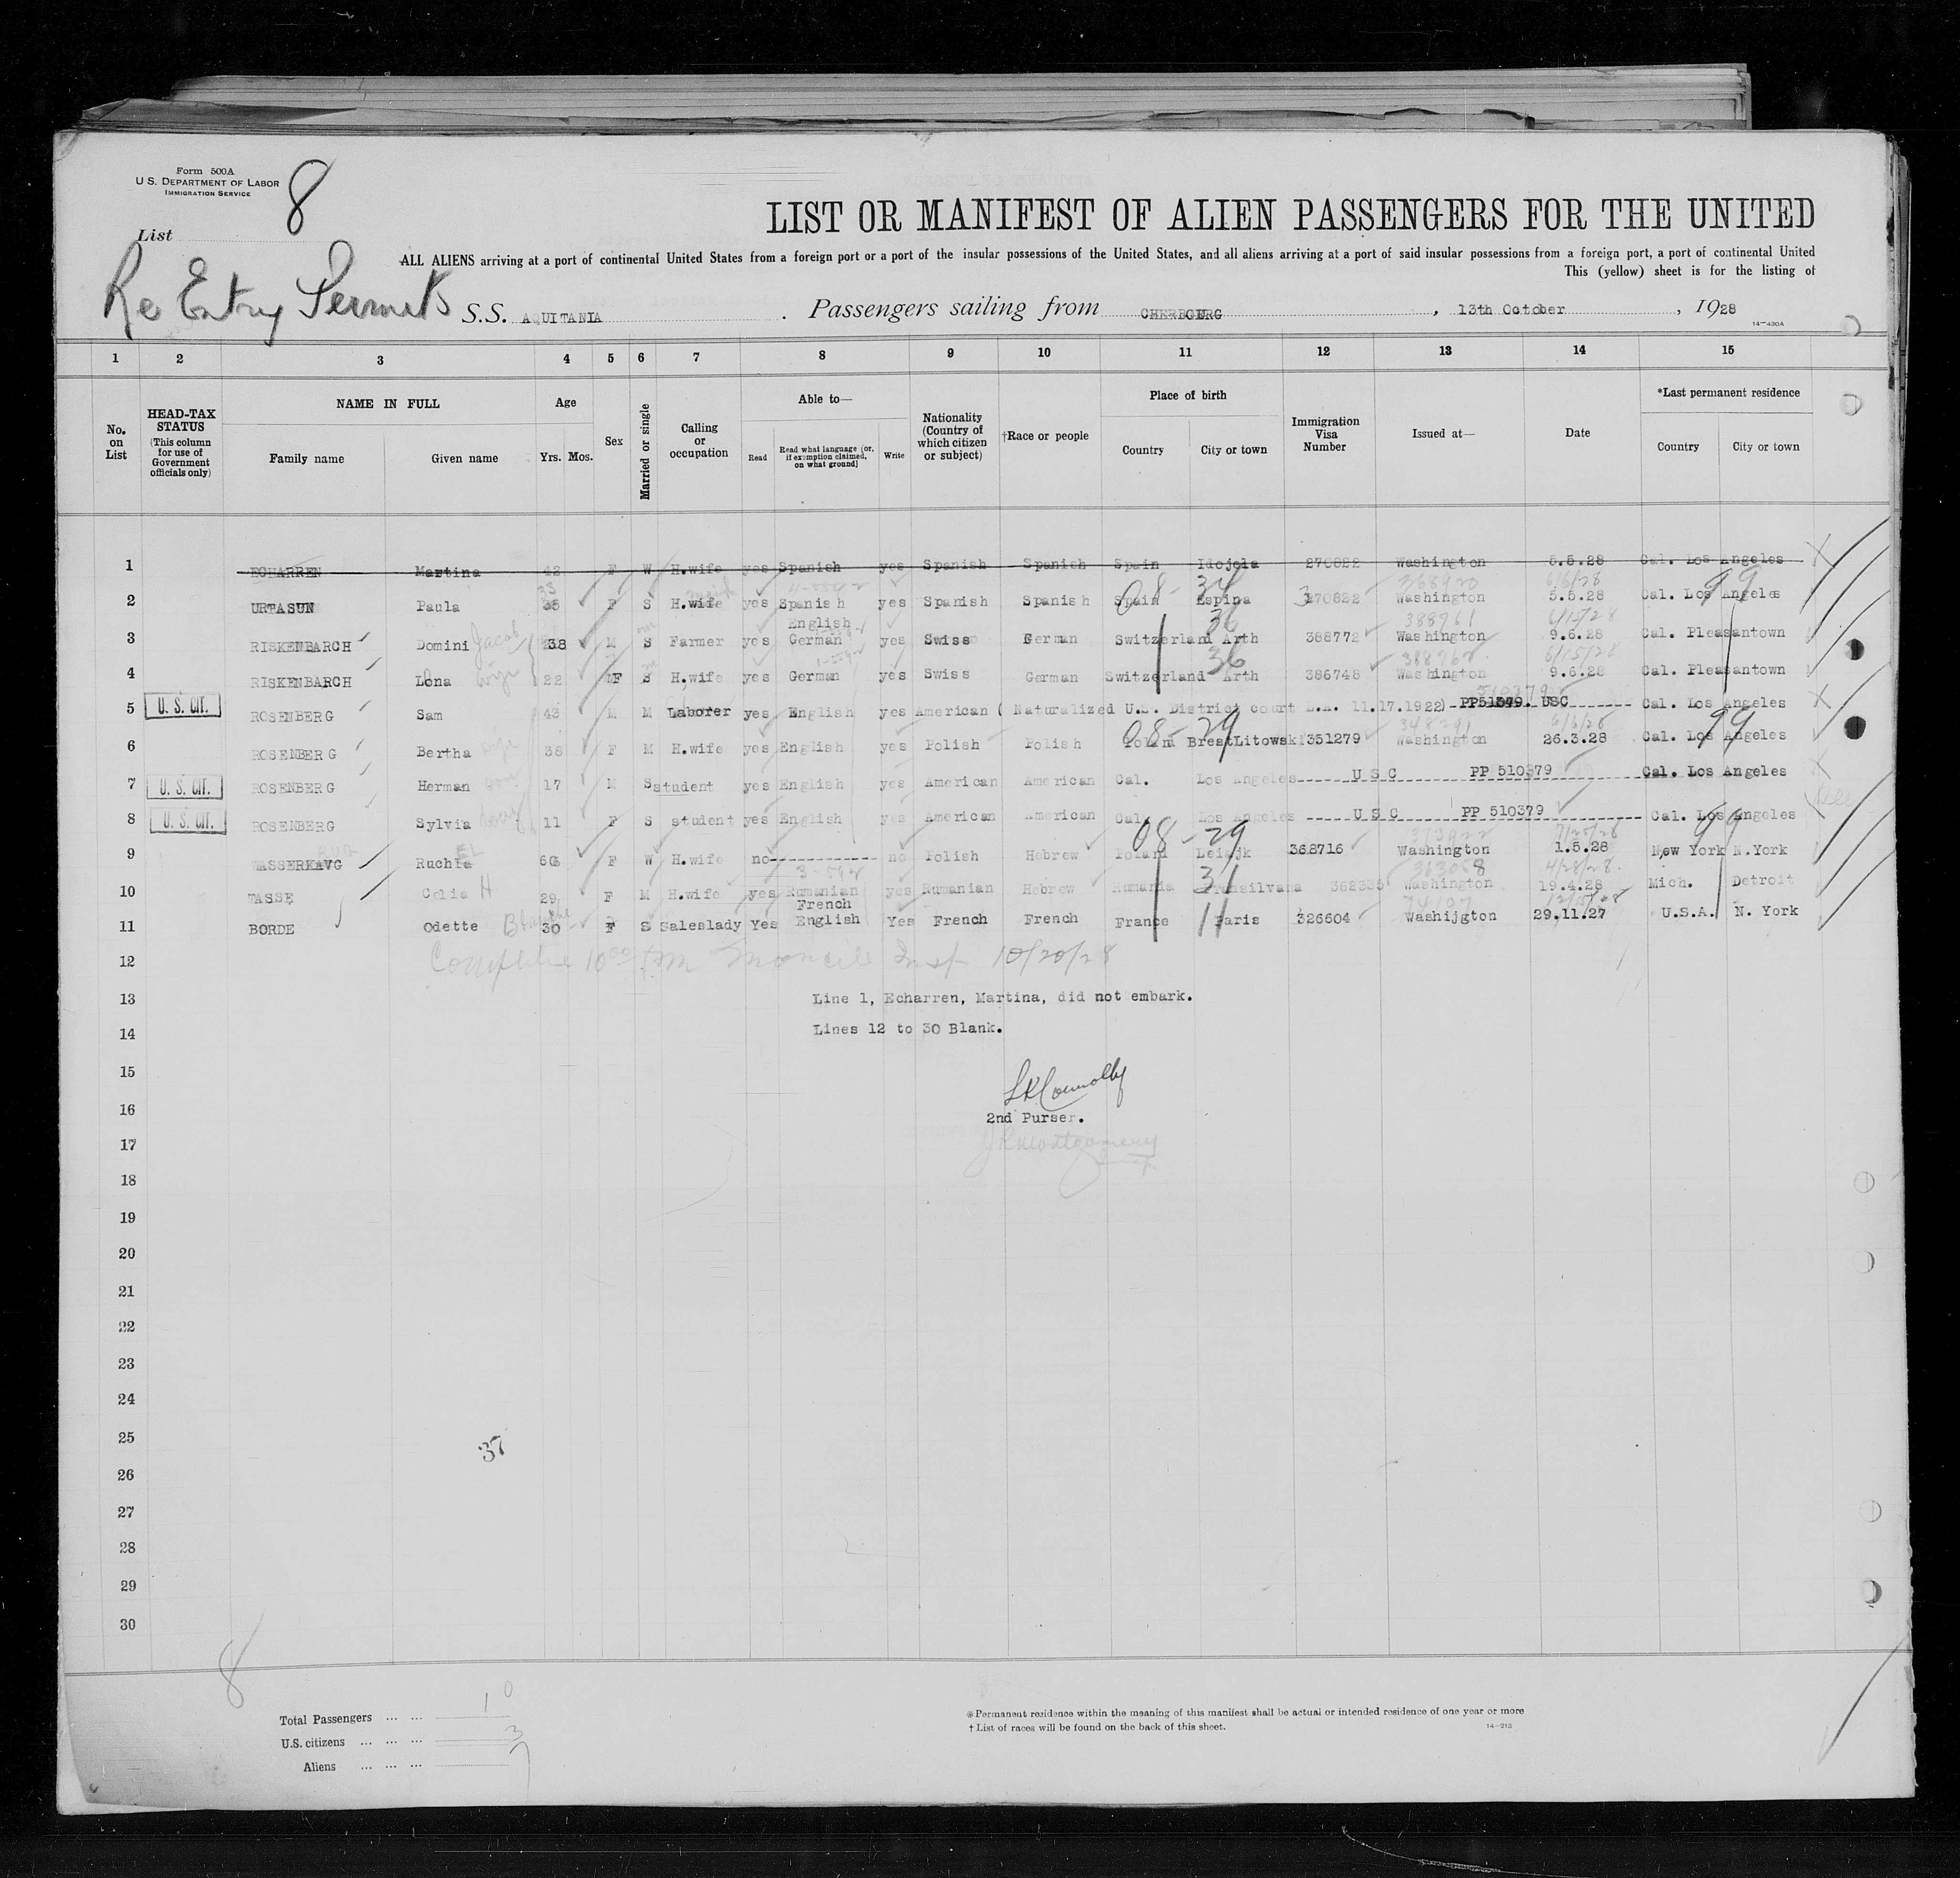 Form 500A
U. S. DEPARTMENT OF LABOR
IMMIGRATION SERVICE
8
List
Re Entry Permits
LIST OR MANIFEST OF ALIEN PASSENGERS FOR THE UNITED
ALL ALIENS arriving at a port of continental United States from a foreign port or a port of the insular possessions of the United States, and all aliens arriving at a port of said insular possessions from a foreign port, a port of continental United
This (yellow) sheet is for the listing of
S.S. AQUITANIA . Passengers sailing from CHERBOURG , 13th October , 1928
14—430A
1 2 3 4 5 6 7 8 9 10 11 12 13 14 15
No. on List
HEAD-TAX STATUS (This column for use of Government officials only)
NAME IN FULL
Family name Given name
Age
Yrs. Mos.
Sex
Married or single
Calling or occupation
Able to—
Read Read what language (or, if exemption claimed, on what ground) Write
Nationality (Country of which citizen or subject)
†Race or people
Place of birth
Country City or town
Immigration Visa Number
Issued at—
Date
*Last permanent residence
Country City or town
1 ECHARREN Martina 42 F W H.wife yes Spanish yes Spanish Spanish Spain Idojela 270822 Washington 5.5.28 Cal. Los Angeles
33 368920 6/6/28
2 URTASUN Paula F S H.wife yes Spanish yes Spanish Spanish Spain Espina 370822 Washington 5.5.28 Cal. Los Angeles
08- 34 99
English 36 388961 6/15/28
3 RISKENBARCH Domini Jacob 38 M S Farmer yes German yes Swiss German Switzerland Arth 388772 Washington 9.6.28 Cal. Pleasantown
36 388962 6/15/28
4 RISKENBARCH Lona wife 22 F S H.wife yes German yes Swiss German Switzerland Arth 386748 Washington 9.6.28 Cal. Pleasantown
510379
5 U. S. CIT. ROSENBERG Sam 43 M M Laborer yes English yes American ( Naturalized U.S. District court L.A. 11.17.1922) USC Cal. Los Angeles
08-29 348291 6/6/28 99
6 ROSENBERG Bertha wife 38 F M H.wife yes English yes Polish Polish Poland BrestLitowsk 351279 Washington 26.3.28 Cal. Los Angeles
7 U. S. CIT. ROSENBERG Herman son 17 M S student yes English yes American American Cal. Los Angeles U S C PP 510379 Cal. Los Angeles
8 U. S. CIT. ROSENBERG Sylvia 11 F S student yes English yes American American Cal. Los Angeles U S C PP 510379 Cal. Los Angeles
08-29 373922 99
9 WASSERKAVG Ruchla F W H.wife no no Polish Hebrew Poland 368716 Washington 1.5.28 New York N.York
31 363058 4/28/28
10 TASSE Celia H 29 F M H.wife yes Rumanian yes Rumanian Hebrew Rumania Washington 19.4.28 Mich. Detroit
French
11 BORDE Odette Blanche 30 F S Saleslady Yes English Yes French French France Paris 326604 Washijgton 29.11.27 U.S.A. N. York
11
12
10/20/28
13 Line 1, Echarren, Martina, did not embark.
14 Lines 12 to 30 Blank.
15
Connolly
16 2nd Purser.
17 Montgomery
18
19
20
21
22
23
24
25
37
26
27
28
29
30
8
Total Passengers 10
U.S. citizens 3
Aliens 7
*Permanent residence within the meaning of this manifest shall be actual or intended residence of one year or more
† List of races will be found on the back of this sheet.
14—213